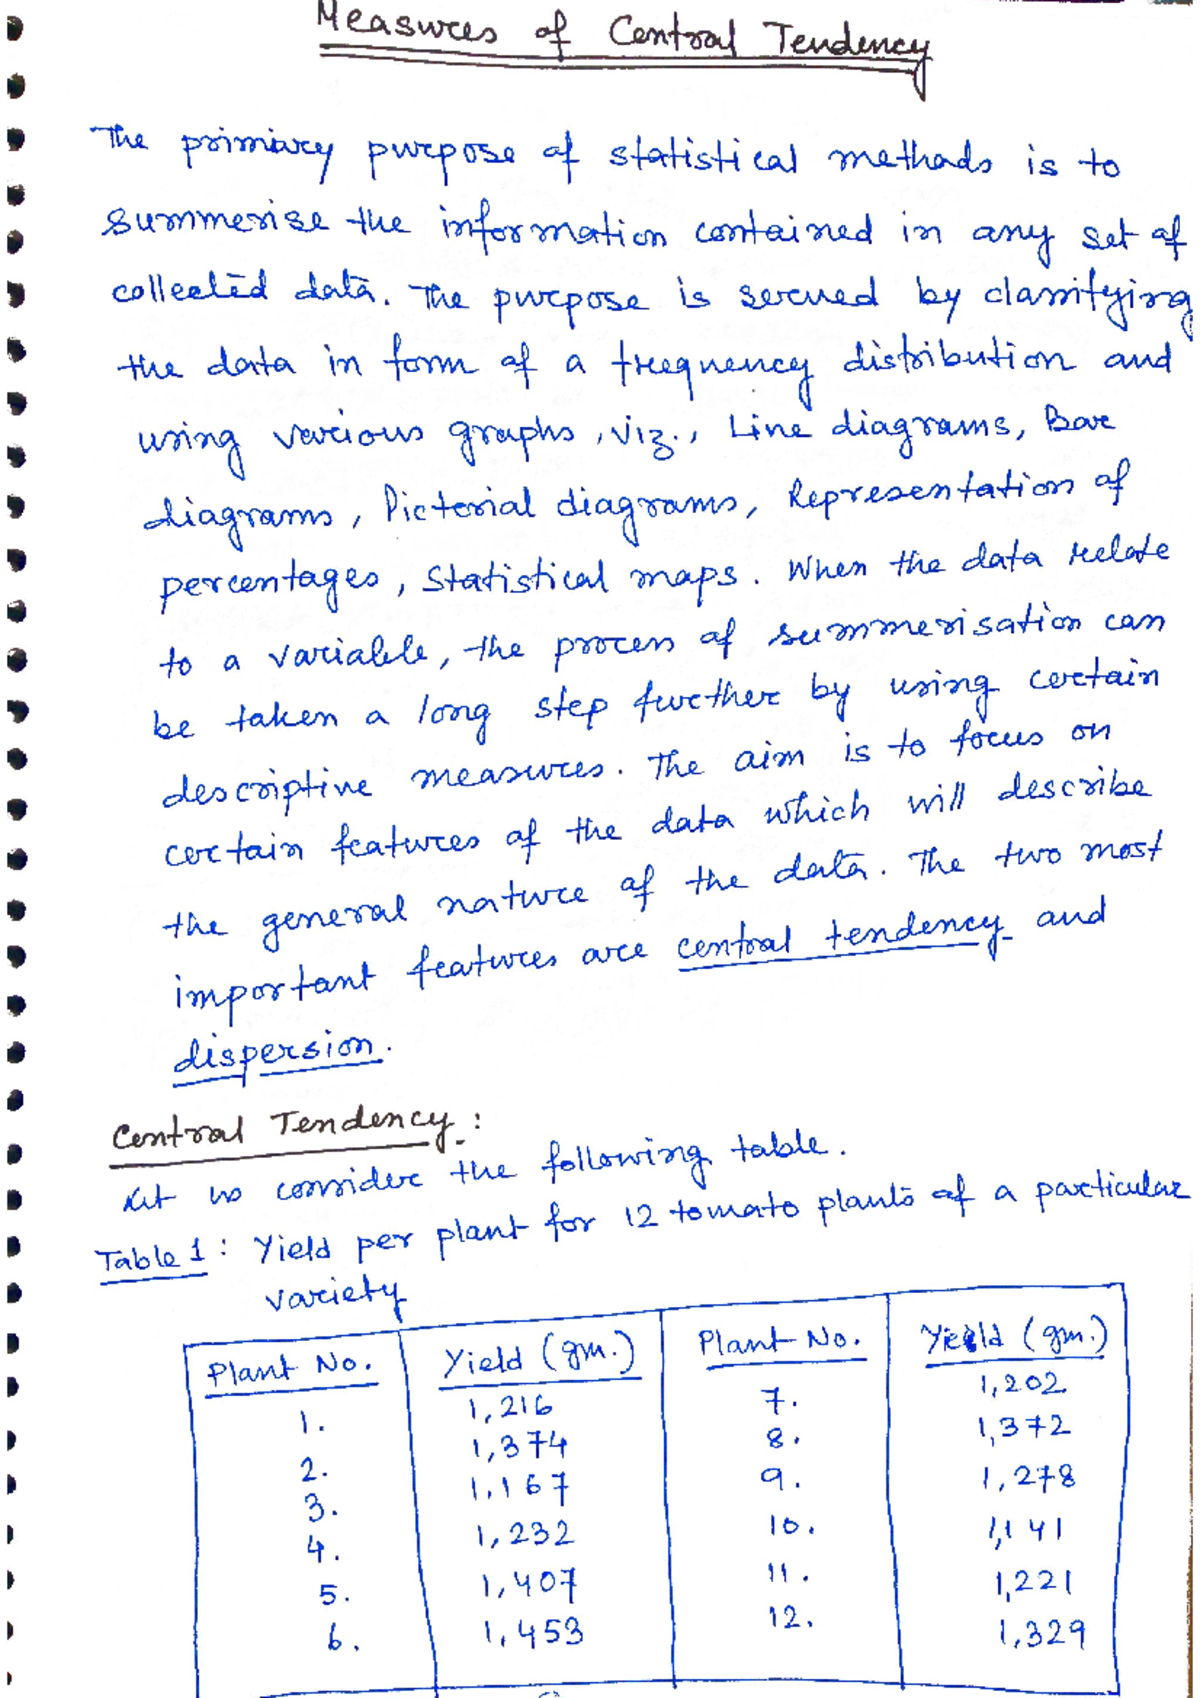 Measures of Central Tendency
The primary purpose of statistical methods is to
summerise the information contained in any set of
collected data. The purpose is served by classifying
the data in form of a frequency distribution and
using various graphs, viz., Line diagrams, Bar
diagrams, Pictorial diagrams, Representation of
percentages, Statistical maps. When the data relate
to a variable, the process of summerisation can
be taken a long step further by using certain
descriptive measures. The aim is to focus on
certain features of the data which will describe
the general nature of the data. The two most
important features are central tendency and
dispersion.
Central Tendency:
Let us consider the following table.
Table 1: Yield per plant for 12 tomato plants of a particular
variety
Plant No. Yield (gm.) Plant No. Yield (gm.)
1. 1,216 7. 1,202
2. 1,374 8. 1,372
3. 1,167 9. 1,278
4. 1,232 10. 1,141
5. 1,407 11. 1,221
6. 1,453 12. 1,329